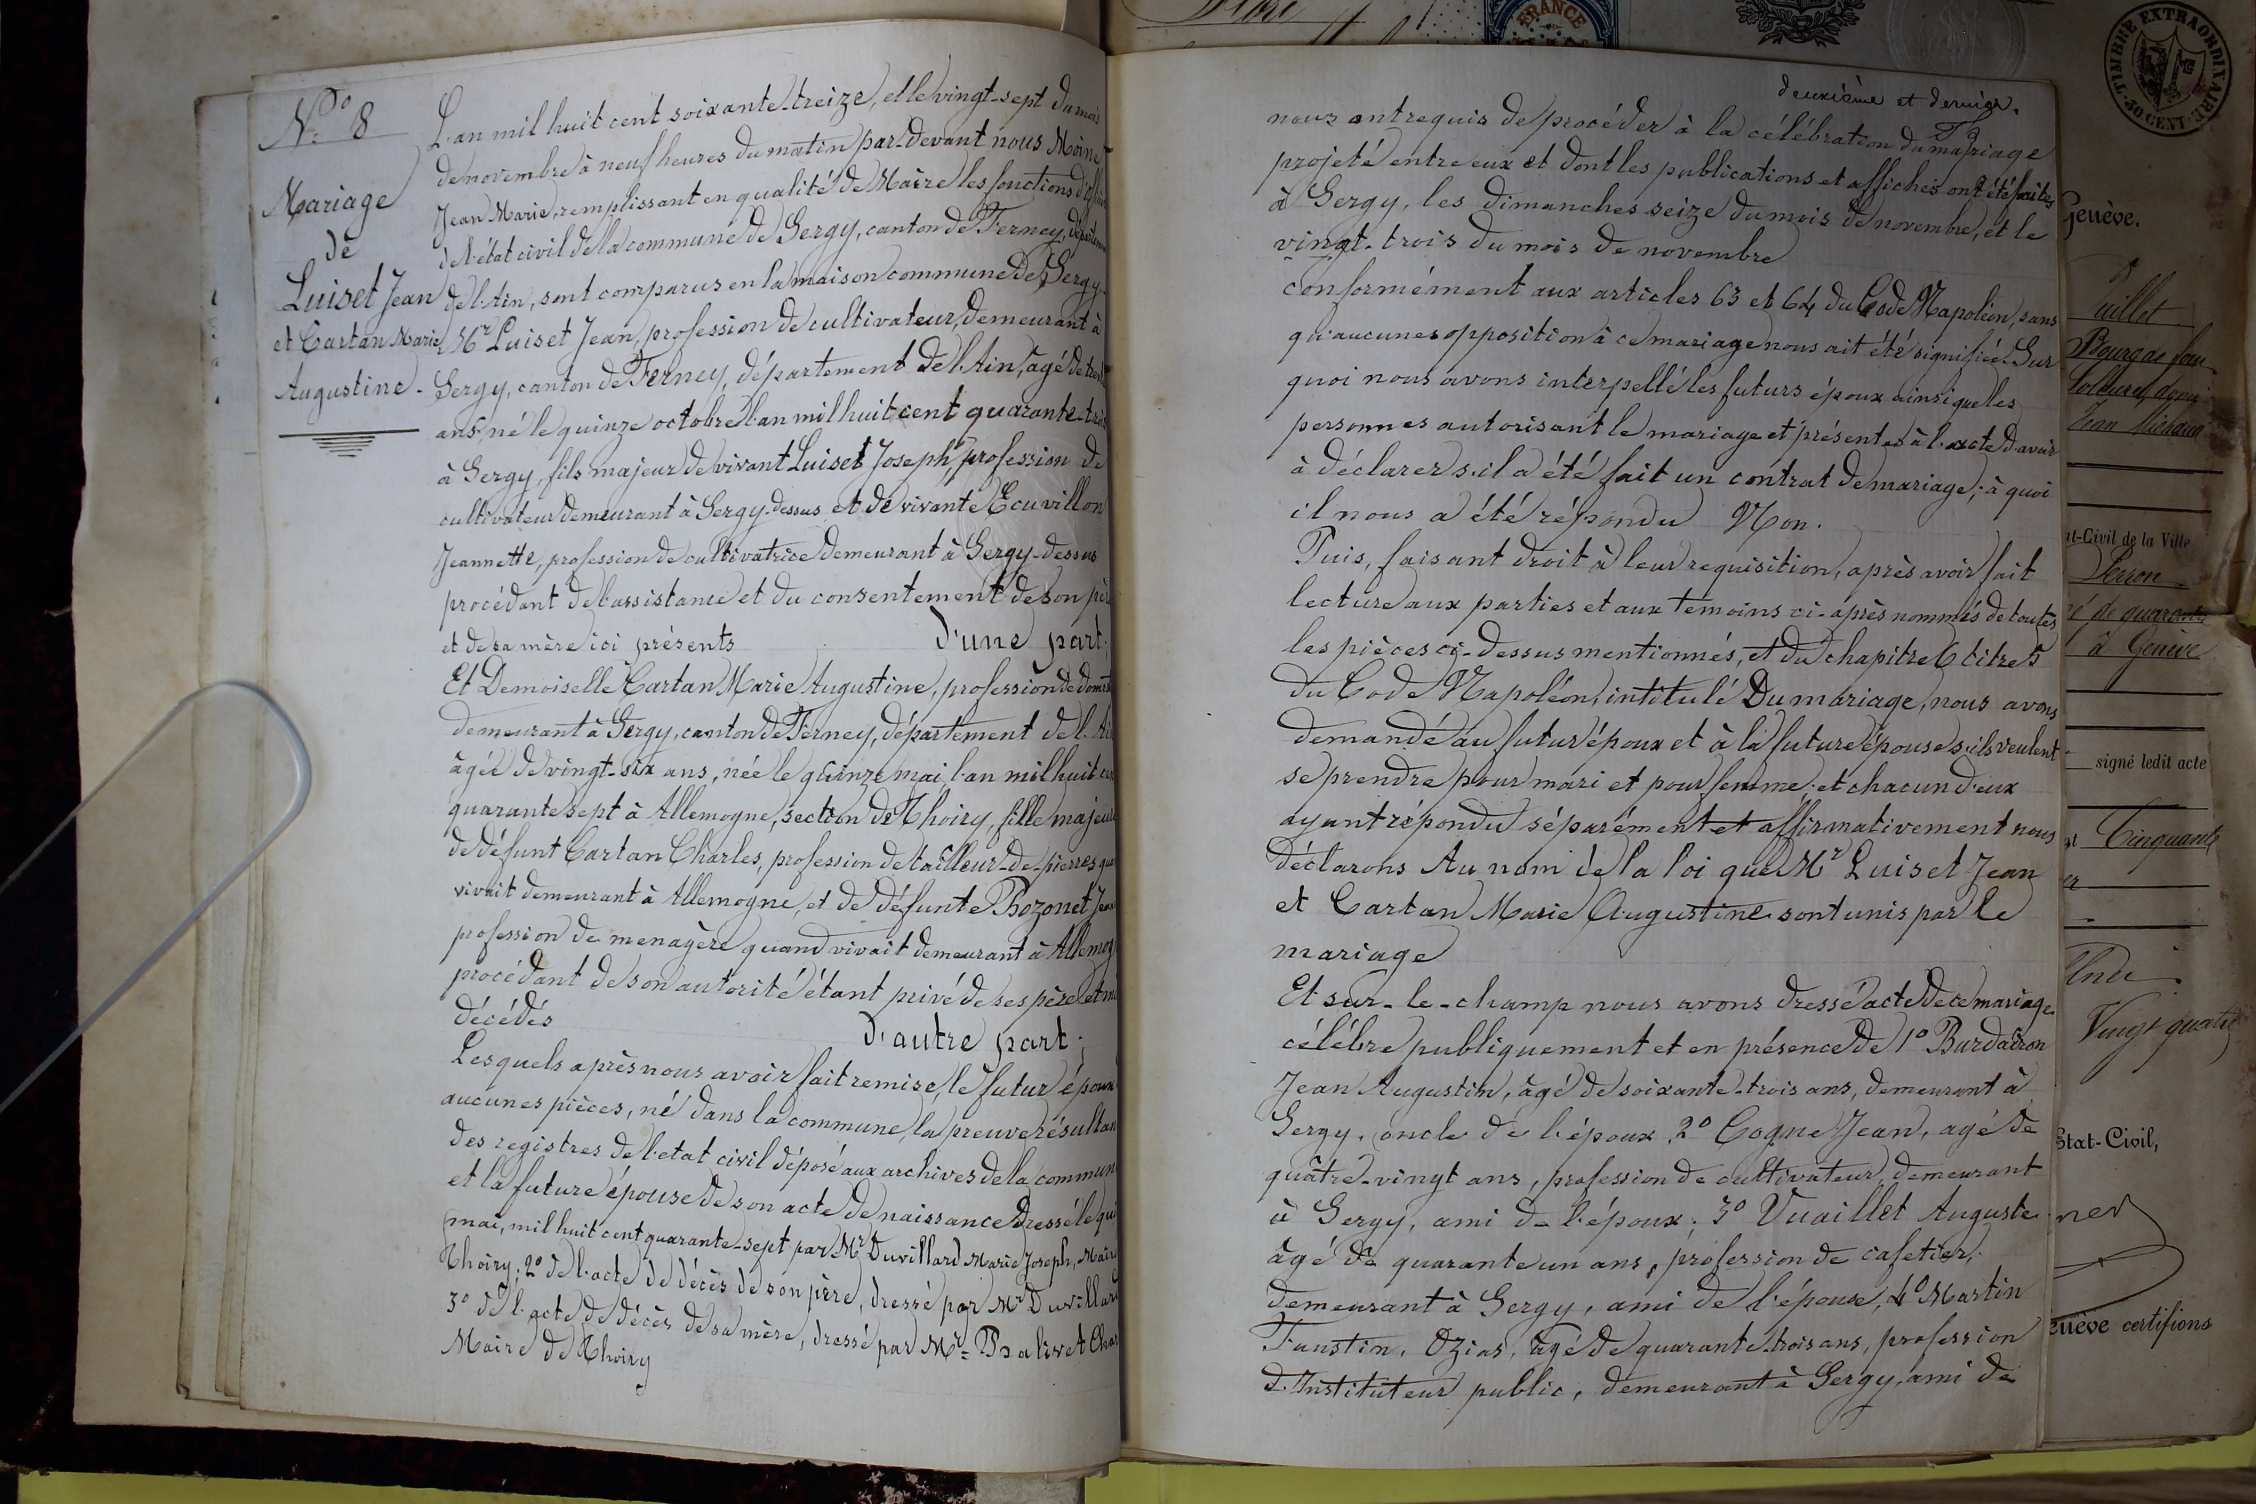 N.º 8
Mariage
de
Luiset Jean
et Cartan Marie
Augustine.
L'an mil huit cent soixante-treize, et le vingt-sept du mois
de novembre à neuf heures du matin par-devant nous Moine
Jean Marie, remplissant en qualité de Maire les fonctions
de l'état civil de la commune de Sergy, canton de Ferney,
de l'Ain, sont comparus en la maison commune de Sergy
Mr Luiset Jean, profession de cultivateur, demeurant à
Sergy, canton de Ferney, département de l'Ain, âgé de
ans né le quinze octobre l'an mil huit cent quarante-trois
à Sergy, fils majeur de vivant Luiset Joseph, profession de
cultivateur demeurant à Sergy-dessus et de vivante Ecuvillon
Jeannette, profession de cultivatrice demeurant à Sergy-dessus
procédant de l'assistance et du consentement de son père
et de sa mère ici présents d'une part.
Et Demoiselle Cartan Marie Augustine, profession de
demeurant à Sergy, canton de Ferney, département de l'Ai
âgée de vingt-six ans, née le quinze mai, l'an mil huit cen
quarante sept à Allemogne, section de Thoiry, fille majeure
de défunt Cartan Charles, profession de tailleur-de-pierres qua
vivait demeurant à Allemogne, et de défunte Bozonet Jea
profession de menagère quand vivait demeurant à Allemog
procédant de son autorité étant privé de ses père et m
décédés d'autre part;
Lesquels après nous avoir fait remise, le futur époux
aucunes pièces, né dans la commune, la preuve résultan
des registres de l'etat civil déposé aux archives de la commun
et la future épouse de son acte de naissance dressé le qui
mai, mil huit cent quarante-sept par Mr Duvillard Marie Joseph, Maire
Thoiry; 2º de l'acte de décès de son père, dressé par Mr Duvillard
3º de l'acte de décès de sa mère, dressé par Mr
Maire de Thoiry
deuxième et dernier.
nous ont requis de procéder à la célébration du mariage
projeté entre eux et dont les publications et affiches ont été faites
à Sergy, les dimanches seize du mois de novembre, et le
vingt-trois du mois de novembre
conformément aux articles 63 et 64 du Code Napoléon, sans
qu'aucunes opposition à ce mariage nous ait été signifiée. Sur
quoi nous avons interpellé les futurs époux ainsi que les
personnes autorisant le mariage et présentes à l'acte d'avoir
à déclarer s'il a été fait un contrat de mariage; à quoi
il nous a été répondu Non.
Puis, faisant droit à leur requisition, après avoir fait
lecture aux parties et aux temoins ci-après nommés de toutes
les pièces ci-dessus mentionnés, et du chapitre 6 titre 5
du Code Napoléon, intitulé Du mariage, nous avons
demandé au futur époux et à la future épouse s'ils veulent
se prendre pour mari et pour femme; et chacun d'eux
ayant répondu séparément et affirmativement nous
déclarons Au nom de la loi que Mr Luiset Jean
et Cartan Marie Augustine sont unis par le
mariage
Et sur-le-champ nous avons dressé acte de ce mariage
célébre publiquement et en présence de 1º Burdairon
Jean Augustin, âgé de soixante-trois ans, demeurant à
Sergy, oncle de l'époux 2º Cogne Jean, agé de
quatre-vingt ans, profession de cultivateur, demeurant
à Sergy, ami de l'époux; 3º Vuaillet Auguste
âgé de quarante un ans, profession de cafetier,
demeurant à Sergy, ami de l'épouse, 4º Martin
Faustin, Ozias, âgé de quarante-trois ans, profession
d'Instituteur public, demeurant à Sergy, ami de
FRANCE
TIMBRE EXTRAORDINAIRE
50 CENT.
Genève.
at-Civil de la Ville
Perron
é de quarante
à Genève
signé ledit acte
Cinquante
Vingt quatre
Etat-Civil,
ner
enève certifions